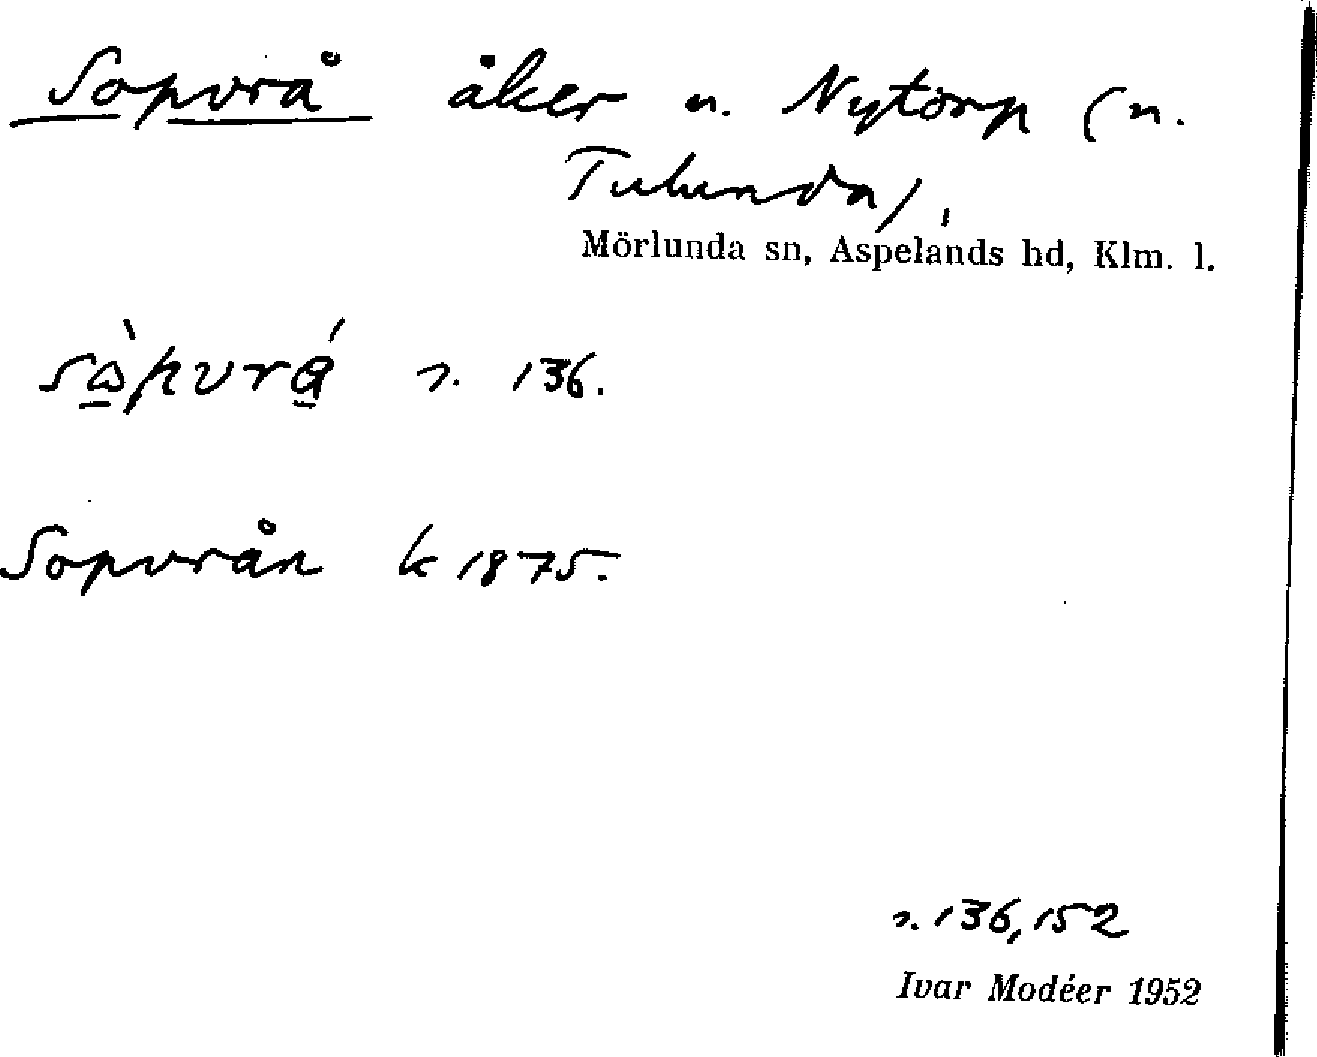 Sopvrå åker n. Nytorp (n.
Tulunda),
Mörlunda sn, Aspelands hd, Klm. l.
s. 136.
Sopvrån k 1875.
s. 136, 152
Ivar Modéer 1952